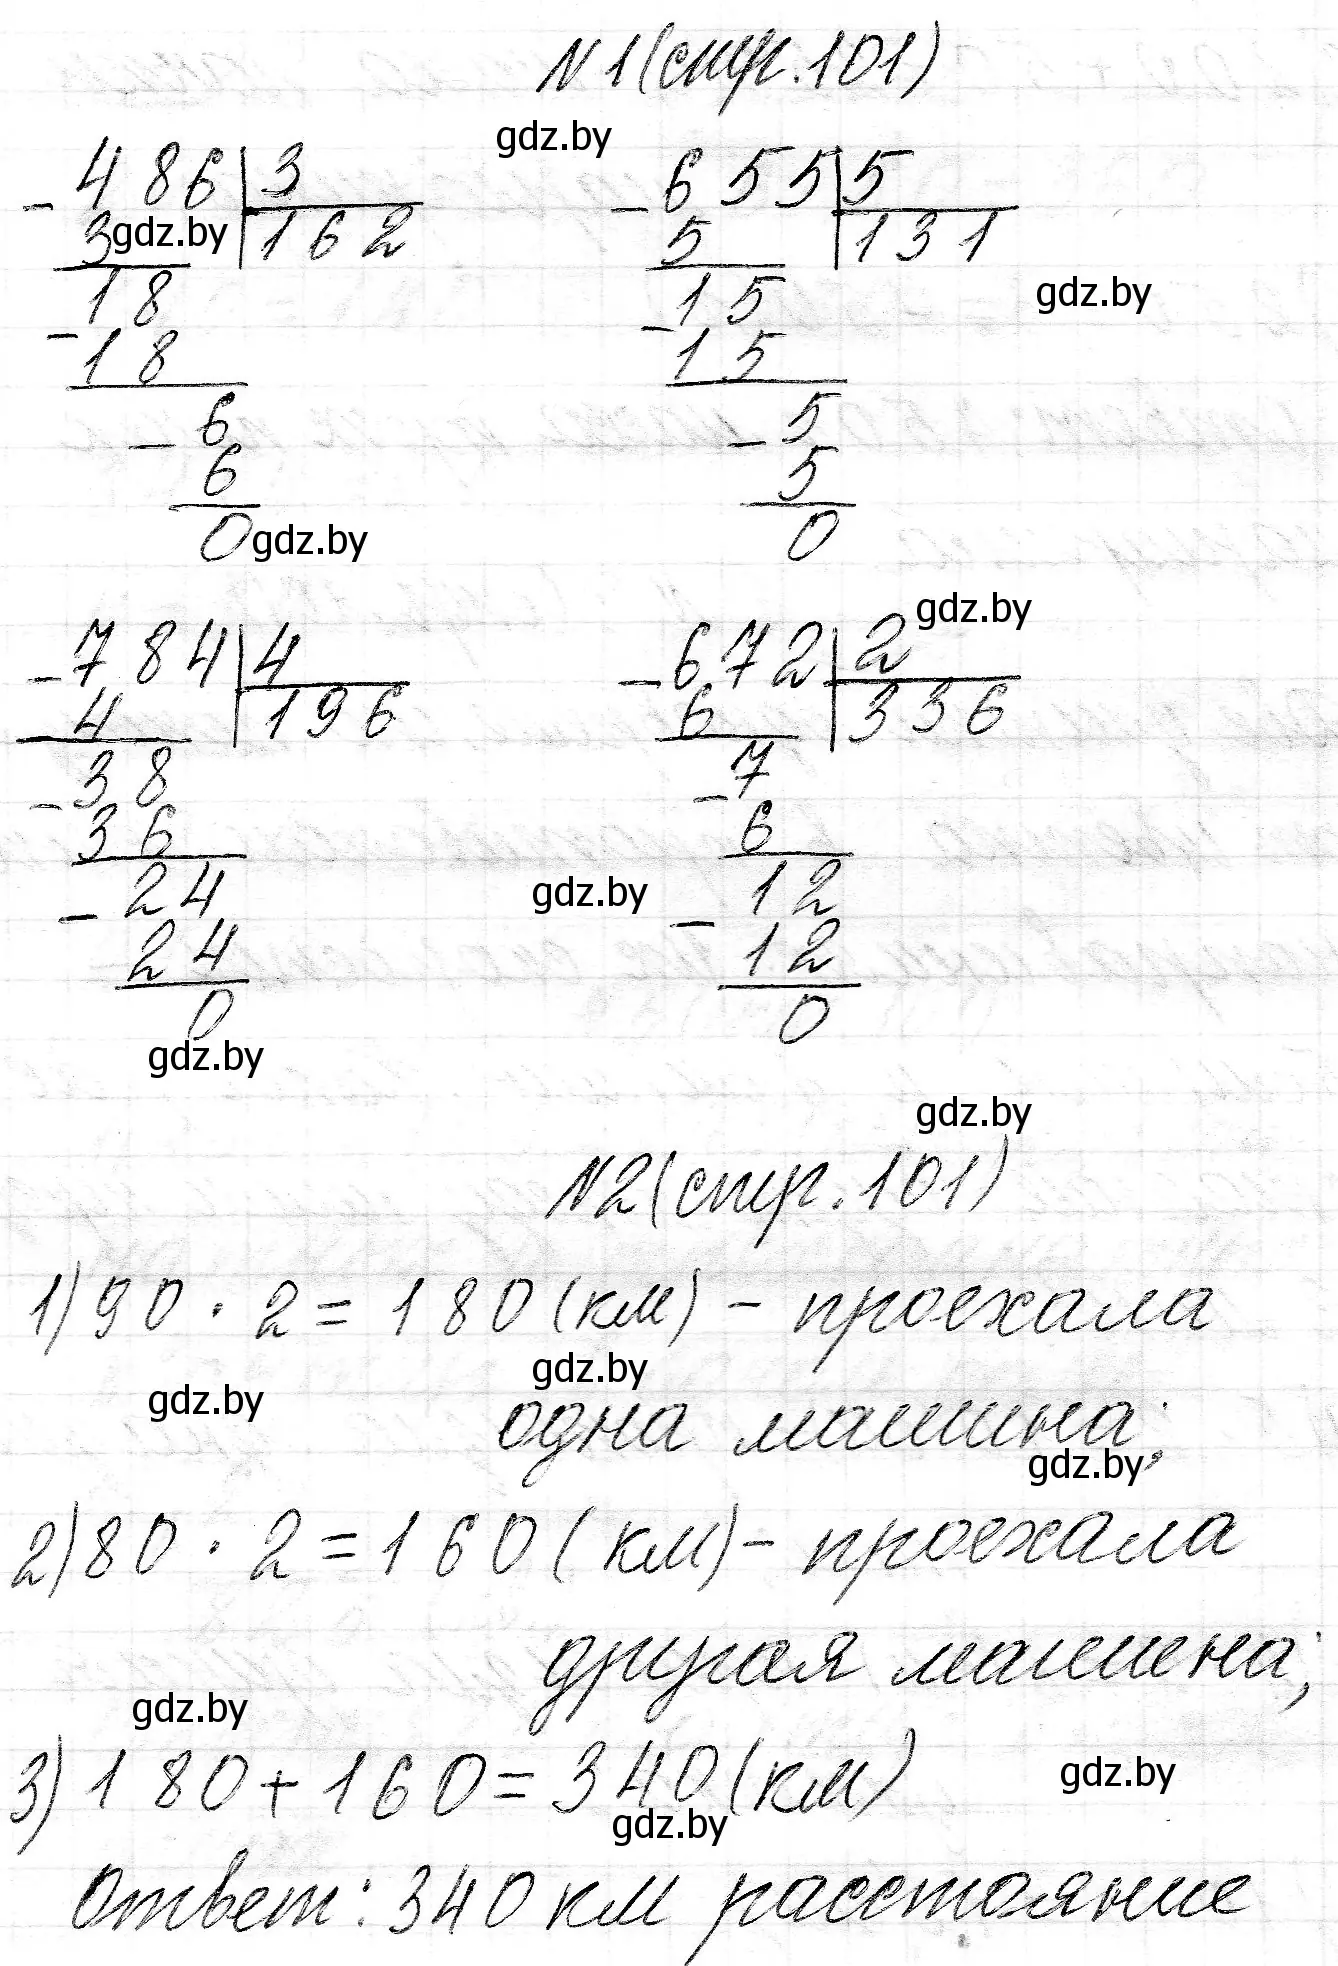 N1(стр.101)
gdz.by
- 486 | 3
3 gdz.by 162
18
- 18
6
- 6
0 gdz.by
- 655 | 5
5 131
gdz.by
15
- 15
5
- 5
0
gdz.by
- 784 | 4
4 196
- 38
36
- 24
24
0
gdz.by
- 672 | 2
6 336
- 7
6
gdz.by
- 12
12
0
gdz.by
N2(стр.101)
1) 90 · 2 = 180 (км) - проехала
gdz.by gdz.by
одна машина;
gdz.by
2) 80 · 2 = 160 (км) - проехала
другая машина;
gdz.by
3) 180 + 160 = 340 (км)
gdz.by
gdz.by
Ответ: 340 км расстояние